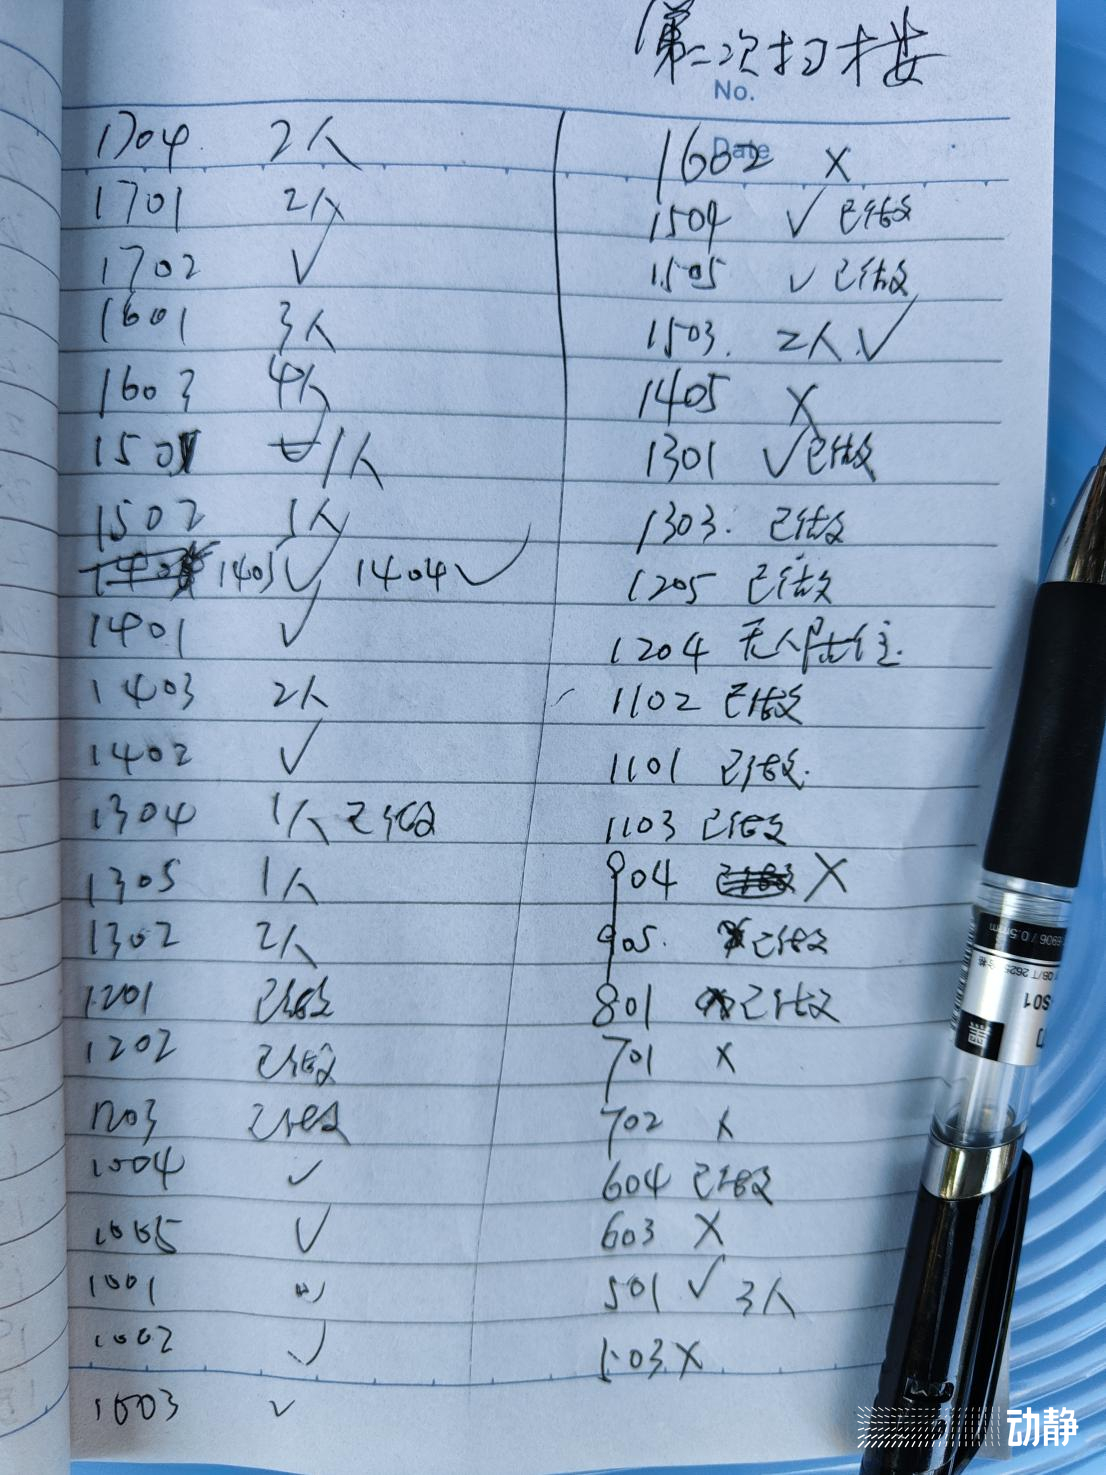 第二次扫楼
No.
Date
1704 2人
1701 2人
1702 ✓
1601 3人
1603 4人
1501 1人
1502 1人
1405 ✓ 1404 ✓
1401 ✓
1403 2人
1402 ✓
1304 1人 已做
1305 1人
1302 2人
1201 已做
1202 已做
1203 已做
1004 ✓
1005 ✓
1001 ✓
1002 ✓
1003 ✓
1602 X
1504 ✓ 已做
1505 ✓ 已做
1503. 2人 ✓
1405 X
1301 ✓ 已做
1303. 已做
1205 已做
1204 无人居住.
1102 已做
1101 已做.
1103 已做
904 X
905. 已做
801 已做
701 X
702 X
604 已做
603 X
501 ✓ 3人
503 X
S01
动静